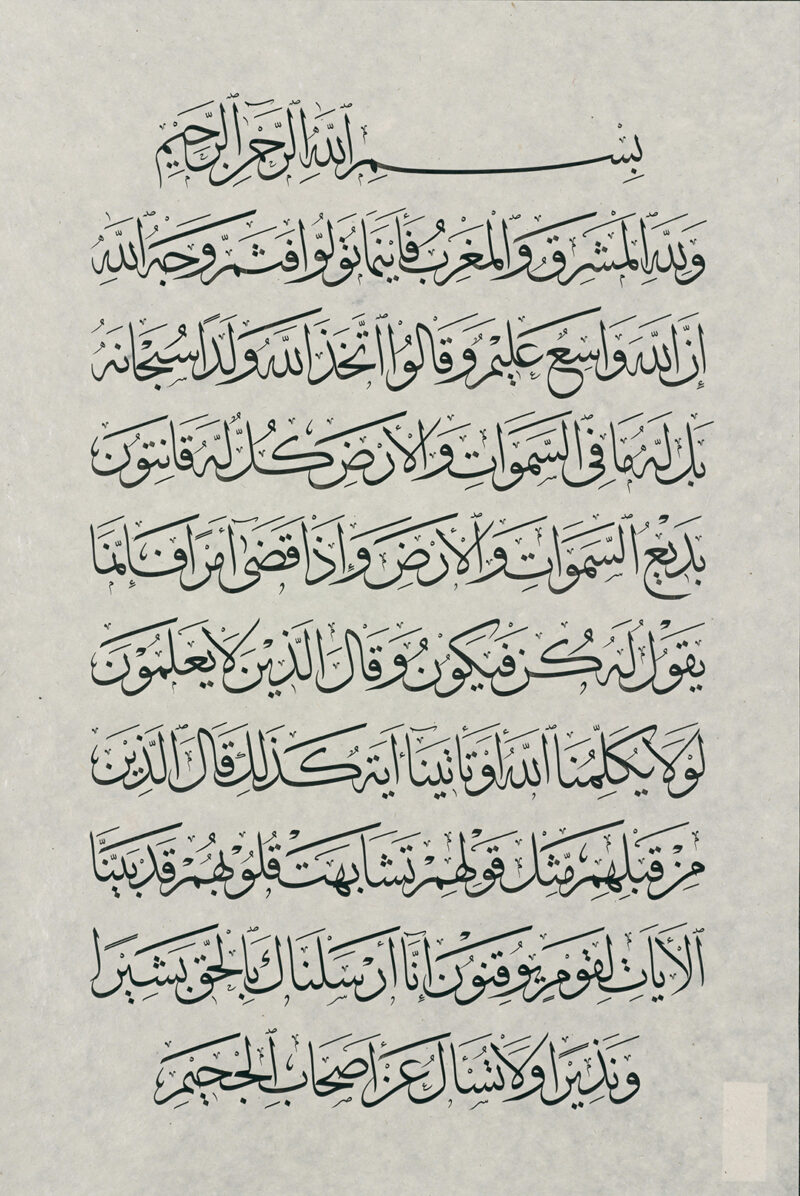 بِسْمِ ٱللَّهِ ٱلرَّحْمٰنِ ٱلرَّحِيمِ
وَلِلَّهِ ٱلْمَشْرِقُ وَٱلْمَغْرِبُ فَأَيْنَمَا تُوَلُّوا فَثَمَّ وَجْهُ ٱللَّهِ
إِنَّ ٱللَّهَ وَاسِعٌ عَلِيمٌ وَقَالُوا ٱتَّخَذَ ٱللَّهُ وَلَدًا سُبْحَانَهُ
بَلْ لَهُ مَا فِي ٱلسَّمَوَاتِ وَٱلْأَرْضِ كُلٌّ لَهُ قَانِتُونَ
بَدِيعُ ٱلسَّمَوَاتِ وَٱلْأَرْضِ وَإِذَا قَضَىٰ أَمْرًا فَإِنَّمَا
يَقُولُ لَهُ كُنْ فَيَكُونُ وَقَالَ ٱلَّذِينَ لَا يَعْلَمُونَ
لَوْلَا يُكَلِّمُنَا ٱللَّهُ أَوْ تَأْتِينَا أَيَةٌ كَذَلِكَ قَالَ ٱلَّذِينَ
مِنْ قَبْلِهِمْ مِثْلَ قَوْلِهِمْ تَشَابَهَتْ قُلُوبُهُمْ قَدْ بَيَّنَّا
ٱلْأَيَاتِ لِقَوْمٍ يُوقِنُونَ إِنَّا أَرْسَلْنَاكَ بِٱلْحَقِّ بَشِيرًا
وَنَذِيرًا وَلَا تُسْأَلُ عَنْ أَصْحَابِ ٱلْجَحِيمِ